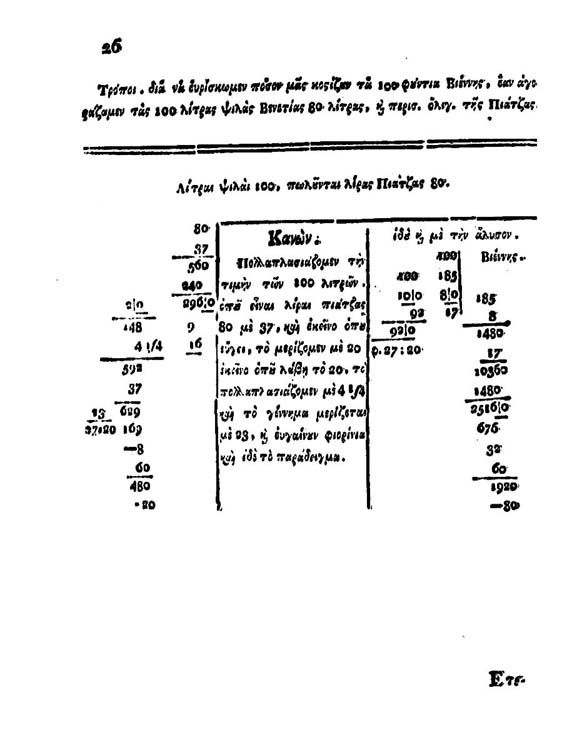 26
Τρόποι . διὰ νὰ ἑυρίσκωμεν πόσον μᾶς κοςίζαν τὰ 100 φύντια Βιέννης, ἐὰν ἀγο
ράζαμεν τὰς 100 λίτρας ψιλὰς Βενετίας 80 λίτρας, ἢ περισ. ὄλιγ. τῆς Πιάτζας
Λίτραι ψιλαὶ 100, πωλῦνται λίρας Πιάτζας 80.
80
37
560
240
2|0 296|0
148 9
4 1/4 16
592
37
23 629
37:20 169
—8
60
480
- 20
Κανὼν :
Πολλαπλασιάζομεν τὴν
τιμὴν τῶν 100 λιτρῶν .
ὁπῦ εἶναι λίραι πιάτζας
80 μὲ 37, καὶ ἐκεῖνο ὁπῦ
εὔγει, τὸ μερίζομεν μὲ 20
ἐκεῖνο ὁπῦ λάβῃ τὸ 20, τὸ
πολλαπλασιάζομεν μὲ 4 1/4
καὶ τὸ γέννημα μερίζεται
μὲ 23, ἢ ἐυγαίνυν φιορίνια
καὶ ἰδὲ τὸ παράδειγμα .
ἰδὲ ἢ μὲ τὴν ἄλυσον .
100 Βιέννης .
100 185
10|0 8|0 185
92 17 8
92|0 1480
φ. 27 : 20 17
10360
1480
2516|0
676
32
60
1920
—80
Ετε-